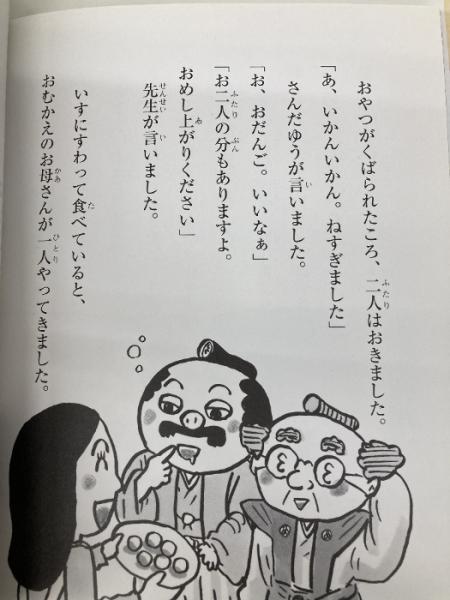 おやつがくばられたころ、二人はおきました。
「あ、いかんいかん。ねすぎました」
さんだゆうが言いました。
「お、おだんご。いいなぁ」
「お二人の分もありますよ。
おめし上がりください」
先生が言いました。
いすにすわって食べていると、
おむかえのお母さんが一人やってきました。